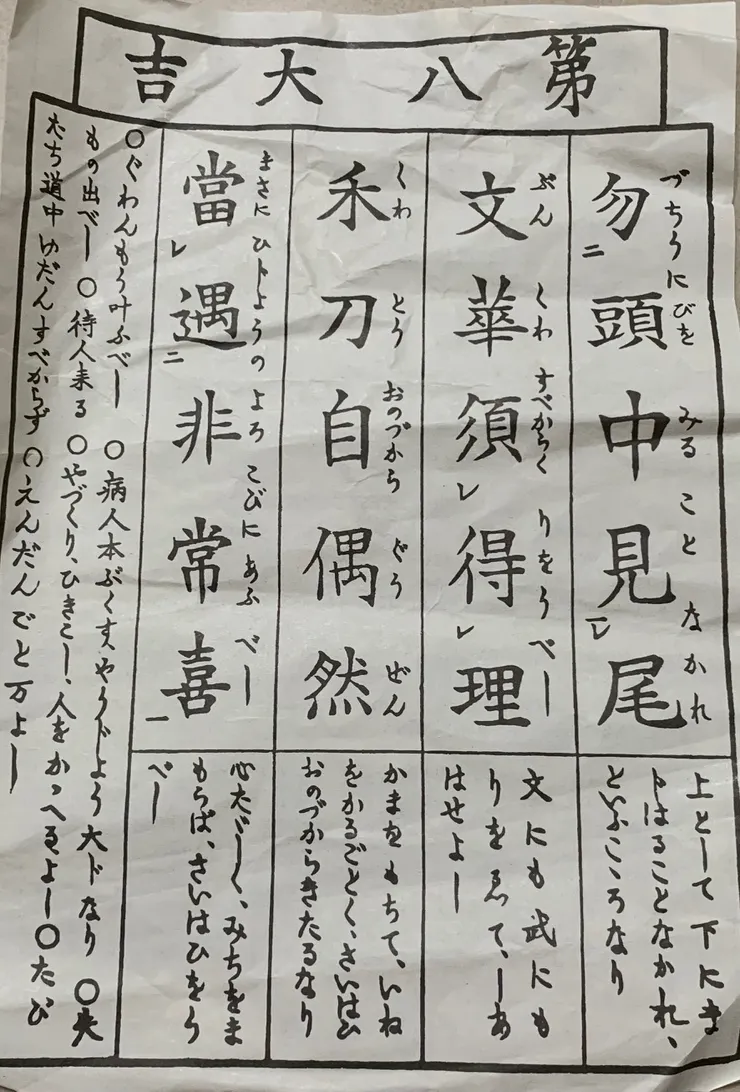 第八大吉
勿頭中見尾
づちうにびを みる こと なかれ
二 レ一
上として下にま
じはることなかれ、
といふこゝろなり
文華須得理
ぶん くわ すべからく りをうべし
レ レ
文にも武にも
りをゑて、しあ
はせよし
禾刀自偶然
くわ とう おのづから ぐう ぜん
かまをもちて、いね
をかるごとく、さいはひ
おのづからきたるなり
當遇非常喜
まさに ひじようの よろこびに あふ べし
レ 二 一
心たゞしく、みちをま
もらば、さいはひをう
べし
○ぐわんもう叶ふべし ○病人本ぶくす、やうじよう大じなり ○失
もの出べし ○待人来る ○やづくり、ひきこし、人をかゝへるよし ○たび
たち道中ゆだんすべからず ○えんだんごと万よし